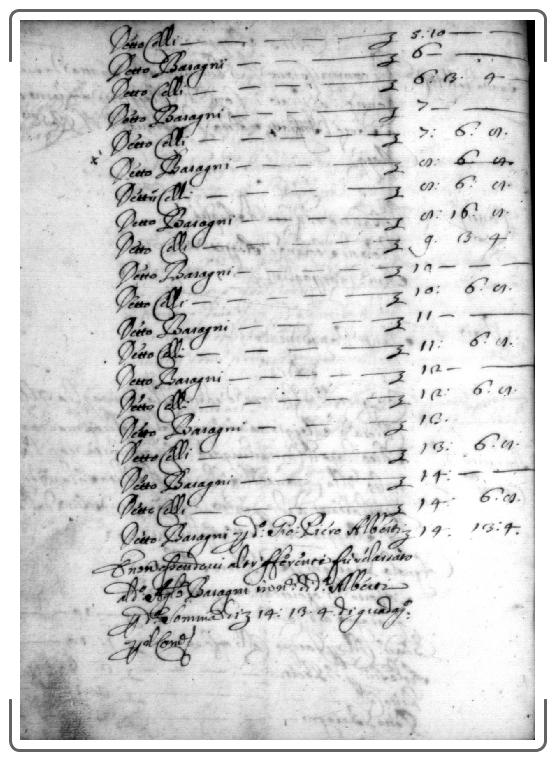 Detto Celli — — — — ʒ 5:10 —
Detto Baragni — — — — ʒ 6 —
Detto Celli — — — — ʒ 6: 13: 4
Detto Baragni — — — — ʒ 7 —
Detto Celli — — — — ʒ 7: 6: 8.
Detto Baragni — — — — ʒ 8: 6 8.
Detto Celli — — — — ʒ 8: 6: 8.
Detto Baragni — — — — ʒ 8: 16: 8.
Detto Celli — — — — ʒ 9. 13 4.
Detto Baragni — — — — ʒ 10 —
Detto Celli — — — — ʒ 10: 6: 8.
Detto Baragni — — — — ʒ 11 —
Detto Celli — — — — ʒ 11: 6: 8.
Detto Baragni — — — — ʒ 12 —
Detto Celli — — — — ʒ 12: 6: 8.
Detto Baragni — — — — ʒ 13.
Detto Celli — — — — ʒ 13: 6: 8.
Detto Baragni — — — — ʒ 14: —
Detto Celli — — — — ʒ 14: 6: 8.
Detto Baragni Gio: Piero Alberti ʒ 14. 13:4.
E non essendovi altri offerenti fu
Baragni Alberti
somma di ʒ 14: 13: 4 di